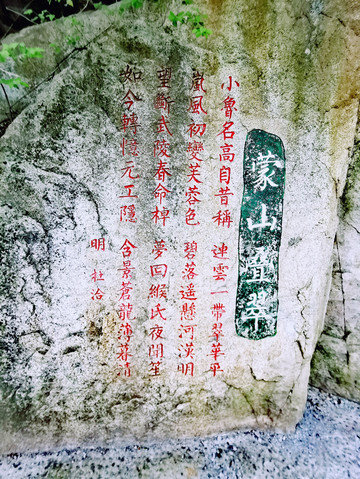 蒙山疊翠
小魯名高自昔稱 連雲一帶翠華平
嵐風初變芙蓉色 碧落遥懸河漢明
望斷武陵春命棹 夢回緱氏夜聞笙
如今轉憶元工隱 含景蒼龍薄暮清
明 杜治